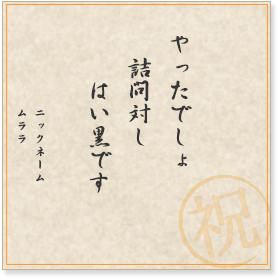 やったでしょ
詰問対し
はい黒です
ニックネーム
ムララ
祝